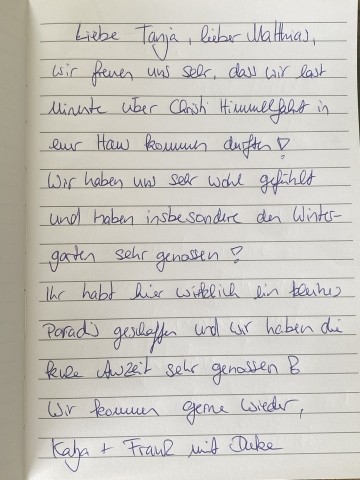 Liebe Tanja, lieber Matthias,
wir freuen uns sehr, dass wir last
Minute über Christi Himmelfahrt in
euer Haus kommen durften!
Wir haben uns sehr wohl gefühlt
und haben insbesondere den Winter-
garten sehr genossen!
Ihr habt hier wirklich ein kleines
Paradis geschaffen und wir haben die
kurze Auszeit sehr genossen
Wir kommen gerne wieder,
Katja + Frank mit